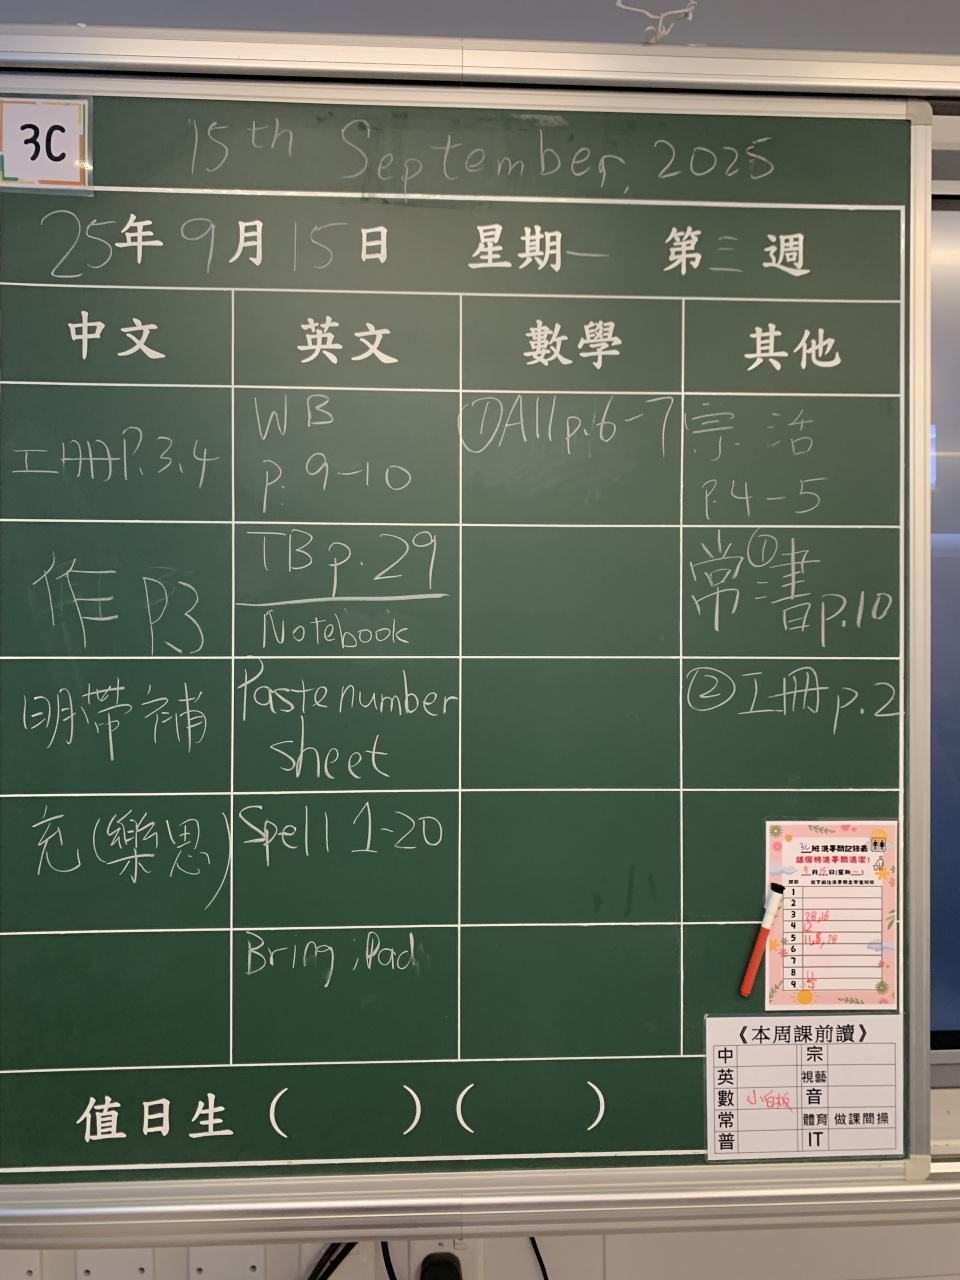 3C
15th September, 2025
25年9月15日 星期一 第三週
中文 英文 數學 其他
工冊P.3.4
WB
p. 9-10
①All p.6-7
宗 活
P.4-5
作 P3
TB p.29
Notebook
常①書 p.10
明帶補
Paste number
sheet
②工冊 p.2
充(樂思)
Spell 1-20
Bring iPad
3C班洗手間記錄表
請保持洗手間清潔!
9月15日(星期一)
1
2
3 28,16
4 12
5
6
7
8
9
《本周課前讀》
中 宗
英 視藝
數 小白板 音
常 體育 做課間操
普 IT
值日生 ( ) ( )